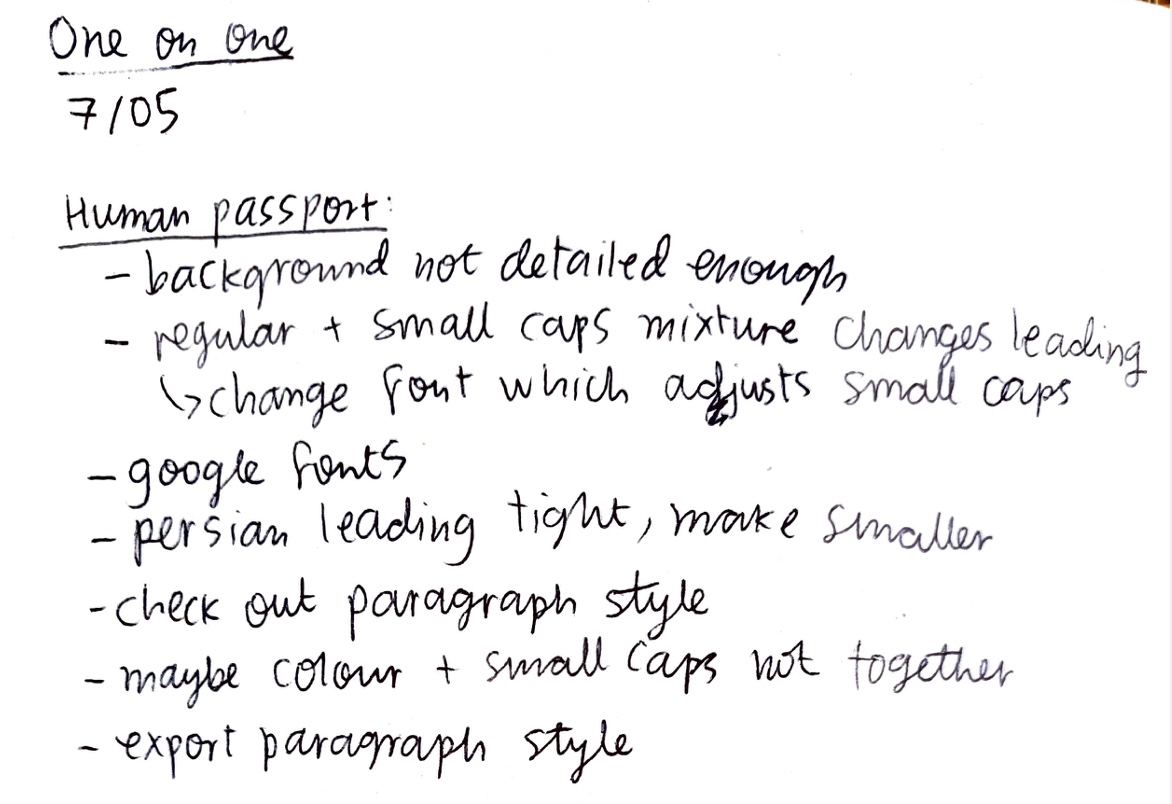 One on One
7/05
Human passport:
- background not detailed enough
- regular + small caps mixture changes leading
↳ change font which adjusts small caps
- google fonts
- persian leading tight, make smaller
- check out paragraph style
- maybe colour + small caps not together
- export paragraph style